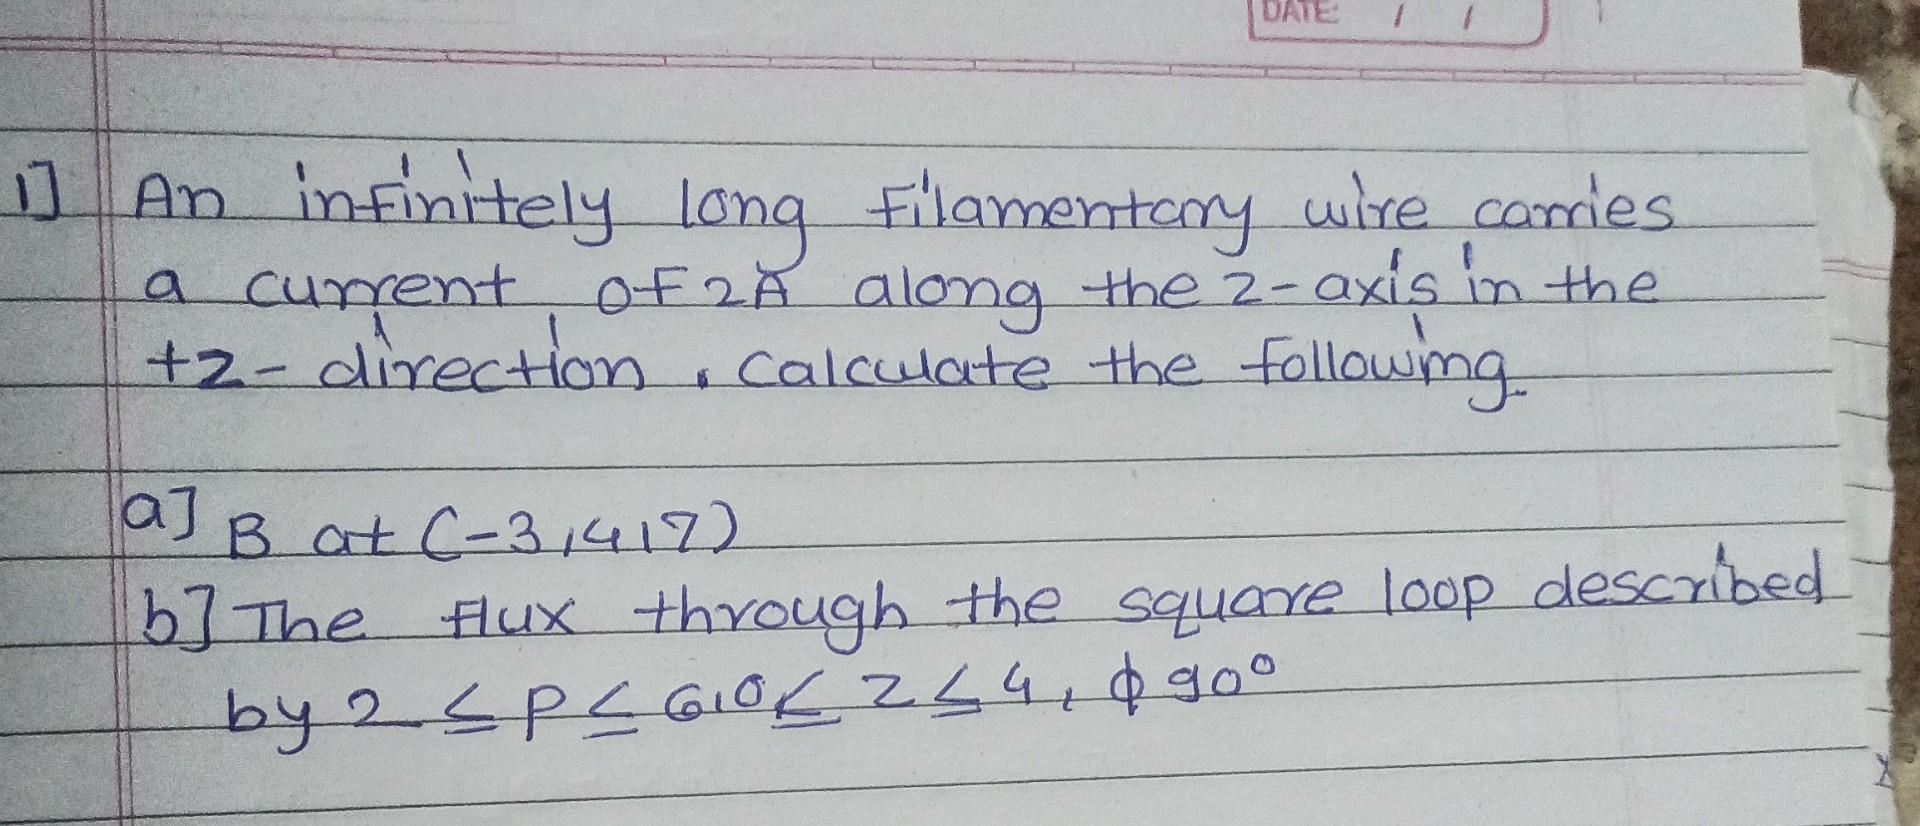 DATE: / /
1] An infinitely long filamentary wire carries
a current of 2A along the z-axis in the
+z-direction. calculate the following.
a] B at (-3,4,7)
b] The flux through the square loop described
by 2 ≤ ρ ≤ 6, 0 ≤ z ≤ 4, ϕ 90°